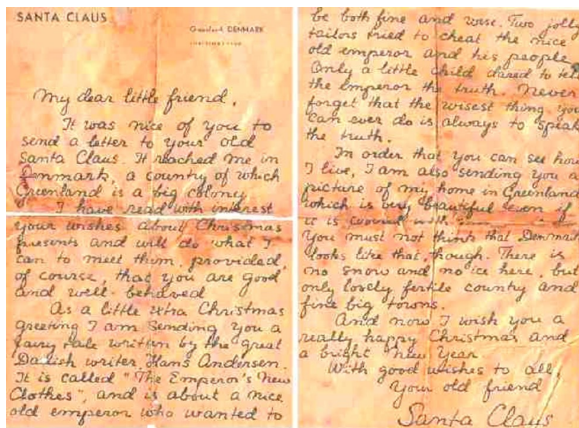 SANTA CLAUS
Greenland, DENMARK
My dear little friend,
It was nice of you to
send a letter to your old
Santa Claus. It reached me in
Denmark, a country of which
Greenland is a big colony.
I have read with interest
your wishes about Christmas
presents and will do what I
can to meet them, provided,
of course, that you are good
and well-behaved
As a little extra Christmas
greeting I am sending you a
fairy tale written by the great
Danish writer, Hans Andersen.
It is called "The Emperor's New
Clothes", and is about a nice
old emperor who wanted to
be both fine and wise. Two jolly
tailors tried to cheat the nice
old emperor and his people
Only a little child dared to tell
the emperor the truth. Never
forget that the wisest thing you
can ever do is always to speak
the truth.
In order that you can see how
I live, I am also sending you a
picture of my home in Greenland
which is very beautiful even if
it is covered with
You must not think that Denmark
looks like that, though. There is
no snow and no ice here, but
only lovely fertile country and
fine big towns.
And now I wish you a
really happy Christmas and
a bright New Year
With good wishes to all,
Your old friend
Santa Claus